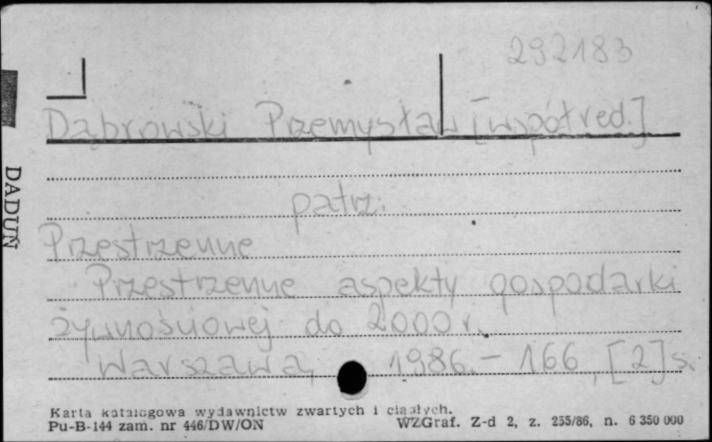 292183
Dąbrowski Przemysław [współred.]
patrz:
Przestrzenne
Przestrzenne aspekty gospodarki
żywnościowej do 2000 r.
Warszawa, 1986. - 166, [2] s.
Karta katalogowa wydawnictw zwartych i ciągłych.
Pu-B-144 zam. nr 446/DW/ON WZGraf. Z-d 2, z. 255/86, n. 6 350 000
DADUŃ